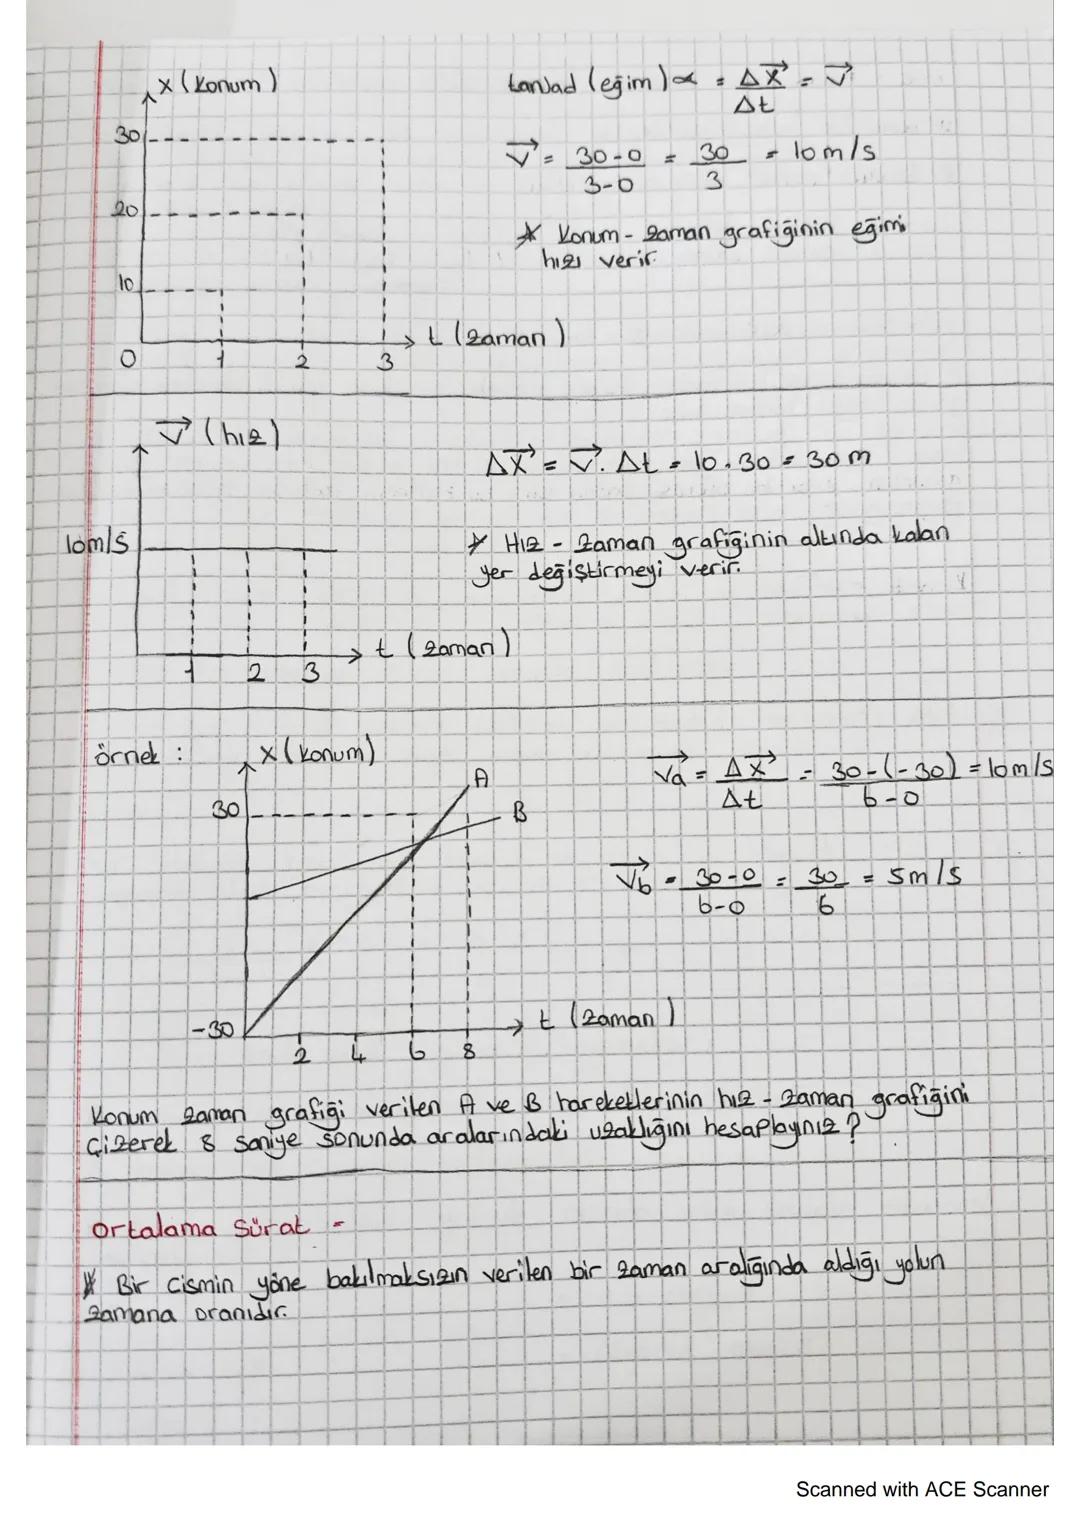 x (Konum)
30
20
10
0
1
2
3
t (zaman)
tanjad (eğim) α = Δx / Δt = v
v = 30-0 / 3-0 = 30 / 3 = 10 m/s
* Konum - zaman grafiğinin eğimi
hızı verir.
v (hız)
10m/s
1
2
3
t (zaman)
Δx = v . Δt = 10 . 30 = 30 m
* Hız - zaman grafiğinin altında kalan
yer değiştirmeyi verir.
örnek :
x (konum)
30
-30
A
B
2
4
6
8
t (zaman)
va = Δx / Δt = 30-(-30) / 6-0 = 10 m/s
vb = 30-0 / 6-0 = 30 / 6 = 5 m/s
Konum zaman grafiği verilen A ve B hareketlerinin hız - zaman grafiğini
çizerek 8 saniye sonunda aralarındaki uzaklığını hesaplayınız ?
Ortalama Sürat -
* Bir cismin yöne bakılmaksızın verilen bir zaman aralığında aldığı yolun
zamana oranıdır.
Scanned with ACE Scanner